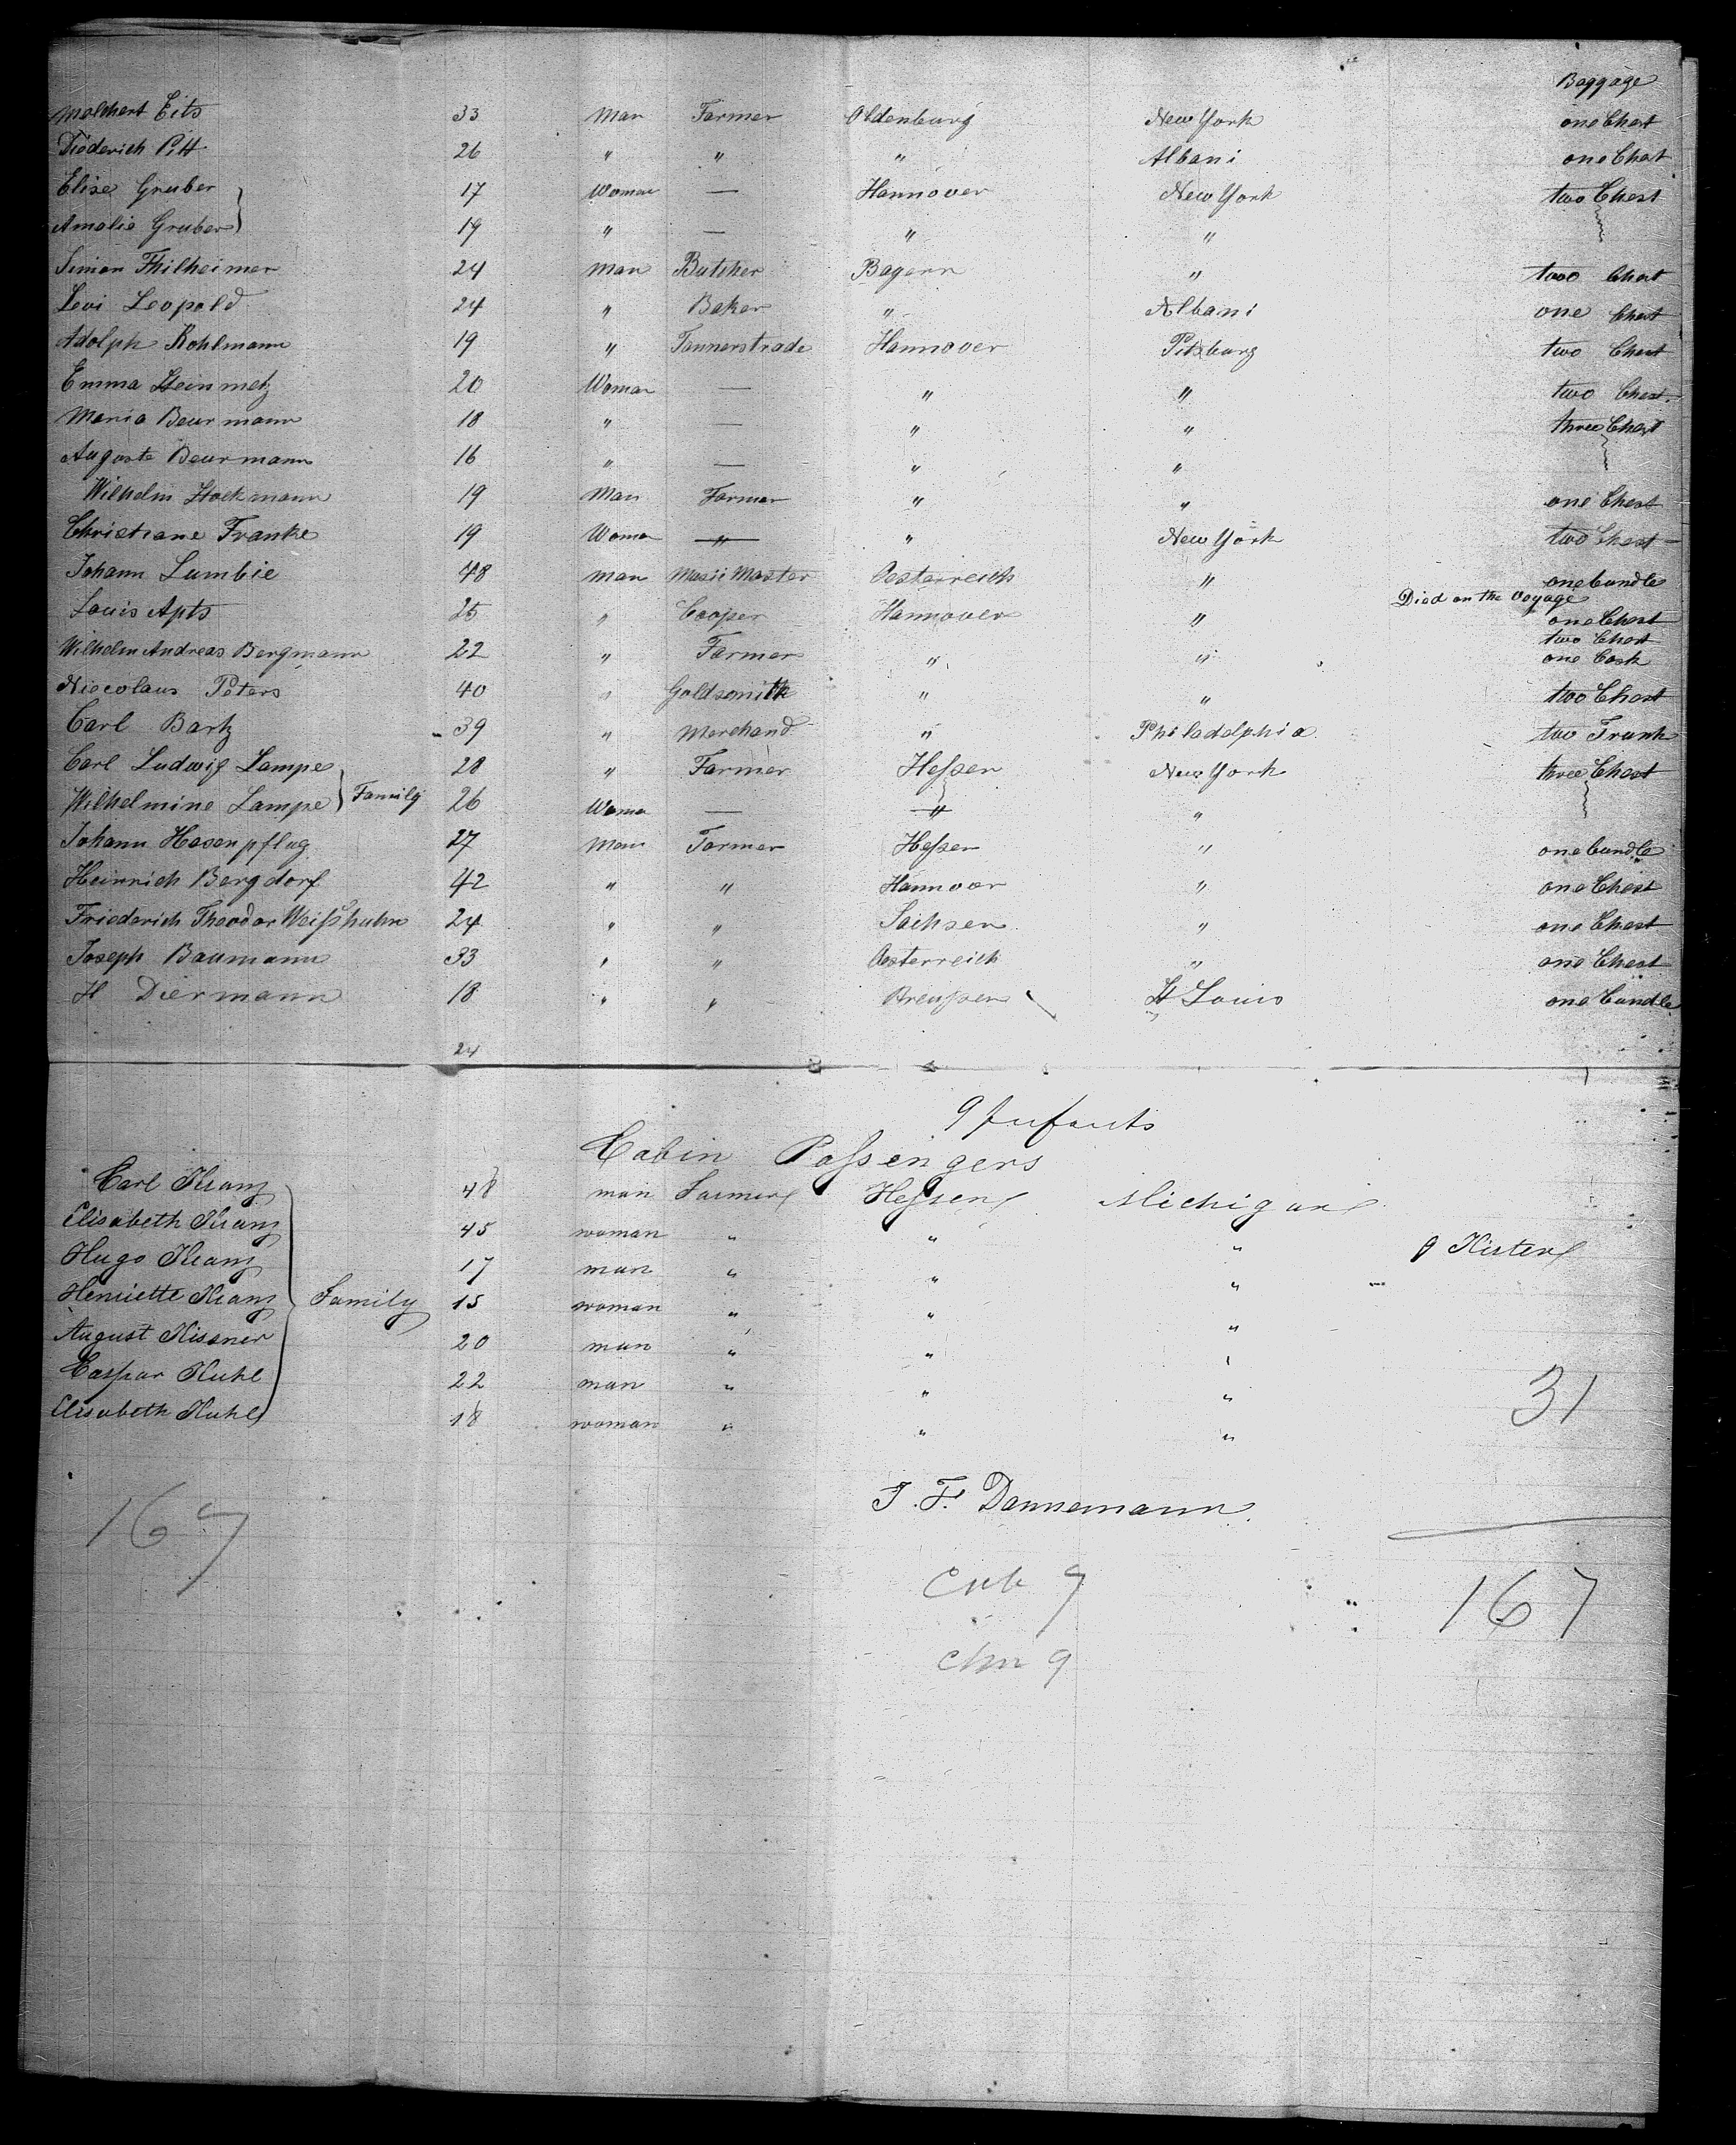 Baggage
Melchert Eits 33 Man Farmer Oldenburg New York one Chest
Diederich Pitt 26 " " " Albani one Chest
Elise Gruber 17 Woman — Hannover New York two Chest
Amalie Gruber 19 " — " "
Simon Thilheimer 24 Man Butcher Bayern " two Chest
Levi Leopold 24 " Baker " Albani one Chest
Adolph Kohlmann 19 " Tannerstrade Hannover Pitsburg two Chest
Emma Steinmetz 20 Woman — " " two Chest
Maria Beurmann 18 " — " " three Chest
Auguste Beurmann 16 " — " "
Wilhelm Hockmann 19 Man Farmer " " one Chest
Christiane Franke 19 Woman — " New York two Chest
Johann Lumbie 48 man Master Oesterreich " one bundle
Died on the Voyage
Louis Apts 25 " Cooper Hannover " one Chest
two Chest
Wilhelm Andreas Bergmann 22 " Farmer " " one Cask
Niecolaus Peters 40 " Goldsmith " " two Chest
Carl Bartz 39 " Merchand " Philadelphia two Trunk
Carl Ludwig Lampe 28 " Farmer Hessen New York three Chest
Wilhelmine Lampe Family 26 Woman — " "
Johann Hasenpflug 27 Man Farmer Hessen " one bundle
Heinrich Bergdorf 42 " " Hannover " one Chest
Friederich Theodor Weisshuhn 24 " " Sachsen " one Chest
Joseph Baumann 33 " " Oesterreich " one Chest
H Diermann 18 " " Preussen St Louis one bundle
24
9 Infants
Cabin Passengers
Carl Kranz 48 man Farmer Hessen Michigan
Elisabeth Kranz 45 woman " " " 9 Kisten
Hugo Kranz 17 man " " "
Henriette Kranz Family 15 woman " " "
August Kissner 20 man " " "
Caspar Kuhl 22 man " " " 31
Elisabeth Kuhl 18 woman " " "
J. F. Dannemann
167
Cab 7 167
Chn 9